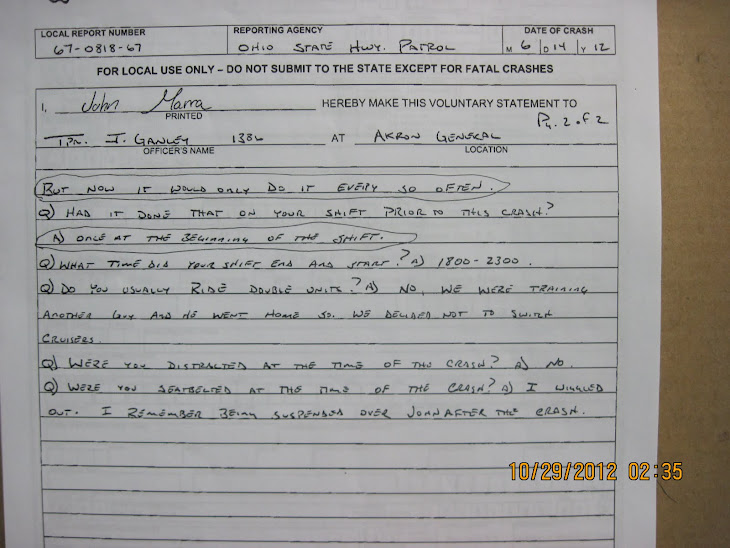 LOCAL REPORT NUMBER
67-0818-67
REPORTING AGENCY
OHIO STATE HWY. PATROL
DATE OF CRASH
M 6 D 14 Y 12
FOR LOCAL USE ONLY – DO NOT SUBMIT TO THE STATE EXCEPT FOR FATAL CRASHES
I, John Marra HEREBY MAKE THIS VOLUNTARY STATEMENT TO
PRINTED
PG. 2 OF 2
TPR. J. GANLEY 1386 AT AKRON GENERAL
OFFICER'S NAME LOCATION
BUT NOW IT WOULD ONLY DO IT EVERY SO OFTEN.
Q) HAD IT DONE THAT ON YOUR SHIFT PRIOR TO THIS CRASH?
A) ONCE AT THE BEGINNING OF THE SHIFT.
Q) WHAT TIME DID YOUR SHIFT END AND START? A) 1800-2300.
Q) DO YOU USUALLY RIDE DOUBLE UNITS? A) NO, WE WERE TRAINING
ANOTHER GUY AND HE WENT HOME SO WE DECIDED NOT TO SWITCH
CRUISERS.
Q) WERE YOU DISTRACTED AT THE TIME OF THE CRASH? A) NO.
Q) WERE YOU SEATBELTED AT THE TIME OF THE CRASH? A) I WIGGLED
OUT. I REMEMBER BEING SUSPENDED OVER JOHN AFTER THE CRASH.
10/29/2012 02:35